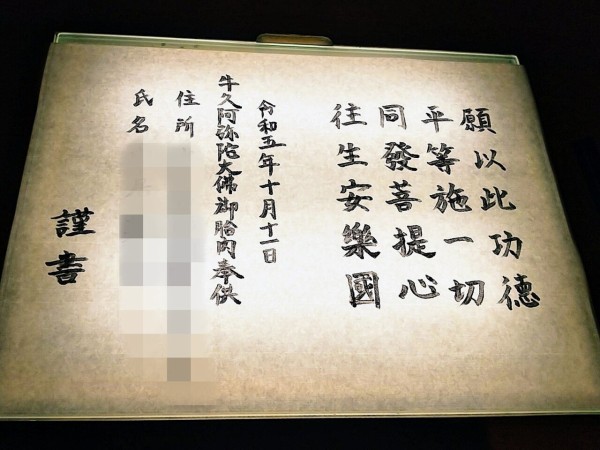 願以此功德
平等施一切
同發菩提心
往生安樂國
令和五年十月十一日
牛久阿弥陀大佛御胎内奉供
住所
氏名
謹書